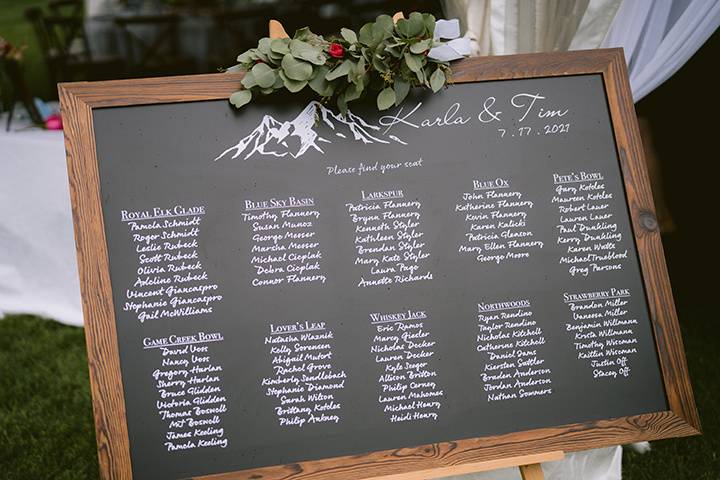 Karla & Tim
7.17.2021
Please find your seat
ROYAL ELK GLADE
Pamela Schmidt
Roger Schmidt
Leslie Rubeck
Scott Rubeck
Olivia Rubeck
Adeline Rubeck
Vincent Giancaspro
Stephanie Giancaspro
Gail McWilliams
BLUE SKY BASIN
Timothy Flannery
Susan Munoz
George Messer
Marsha Messer
Michael Cieplak
Debra Cieplak
Connor Flannery
LARKSPUR
Patricia Flannery
Brynn Flannery
Kenneth Styler
Kathleen Styler
Brendan Styler
Mary Kate Styler
Laura Page
Annette Richards
BLUE OX
John Flannery
Katherine Flannery
Kevin Flannery
Karen Kalicki
Patricia Gleason
Mary Ellen Flannery
George Moore
PETE'S BOWL
Gary Kotoles
Maureen Kotoles
Robert Lauer
Lauren Lauer
Paul Dunkling
Kerry Dunkling
Karen Watts
Michael Trueblood
Greg Parsons
GAME CREEK BOWL
David Voss
Nancy Voss
Gregory Harlan
Sherry Harlan
Bruce Glidden
Victoria Glidden
Thomas Boswell
MJ Boswell
James Keeling
Pamela Keeling
LOVER'S LEAP
Natasha Wlaznik
Kelly Sorensen
Abigail Mutort
Rachel Grove
Kimberly Sendlebach
Stephanie Diamond
Sarah Wilson
Brittany Kotoles
Philip Ankney
WHISKEY JACK
Eric Ramos
Marcy Gieler
Nicholas Decker
Lauren Decker
Kyle Seeger
Allison Britton
Philip Cerney
Lauren Mahomes
Michael Henry
Heidi Henry
NORTHWOODS
Ryan Rendino
Taylor Rendino
Nicholas Kitchell
Catherine Kitchell
Daniel Sams
Kiersten Sattler
Braden Anderson
Jordan Anderson
Nathan Sommers
STRAWBERRY PARK
Brandon Miller
Vanessa Miller
Benjamin Willmann
Krista Willmann
Timothy Wiseman
Kaitlin Wiseman
Justin Off
Stacey Off